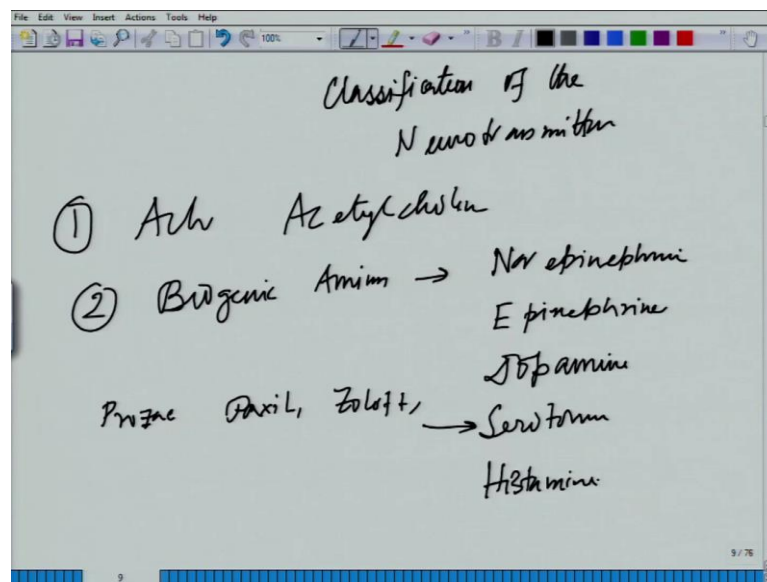 File Edit View Insert Actions Tools Help
100%
B I
Classification of the
Neurotransmitter
① Ach Acetylcholin
② Biogenic Amines → Norepinephrine
Epinephrine
Dopamine
Prozac Paxil, Zoloft, → Serotonin
Histamine
9 / 76
9